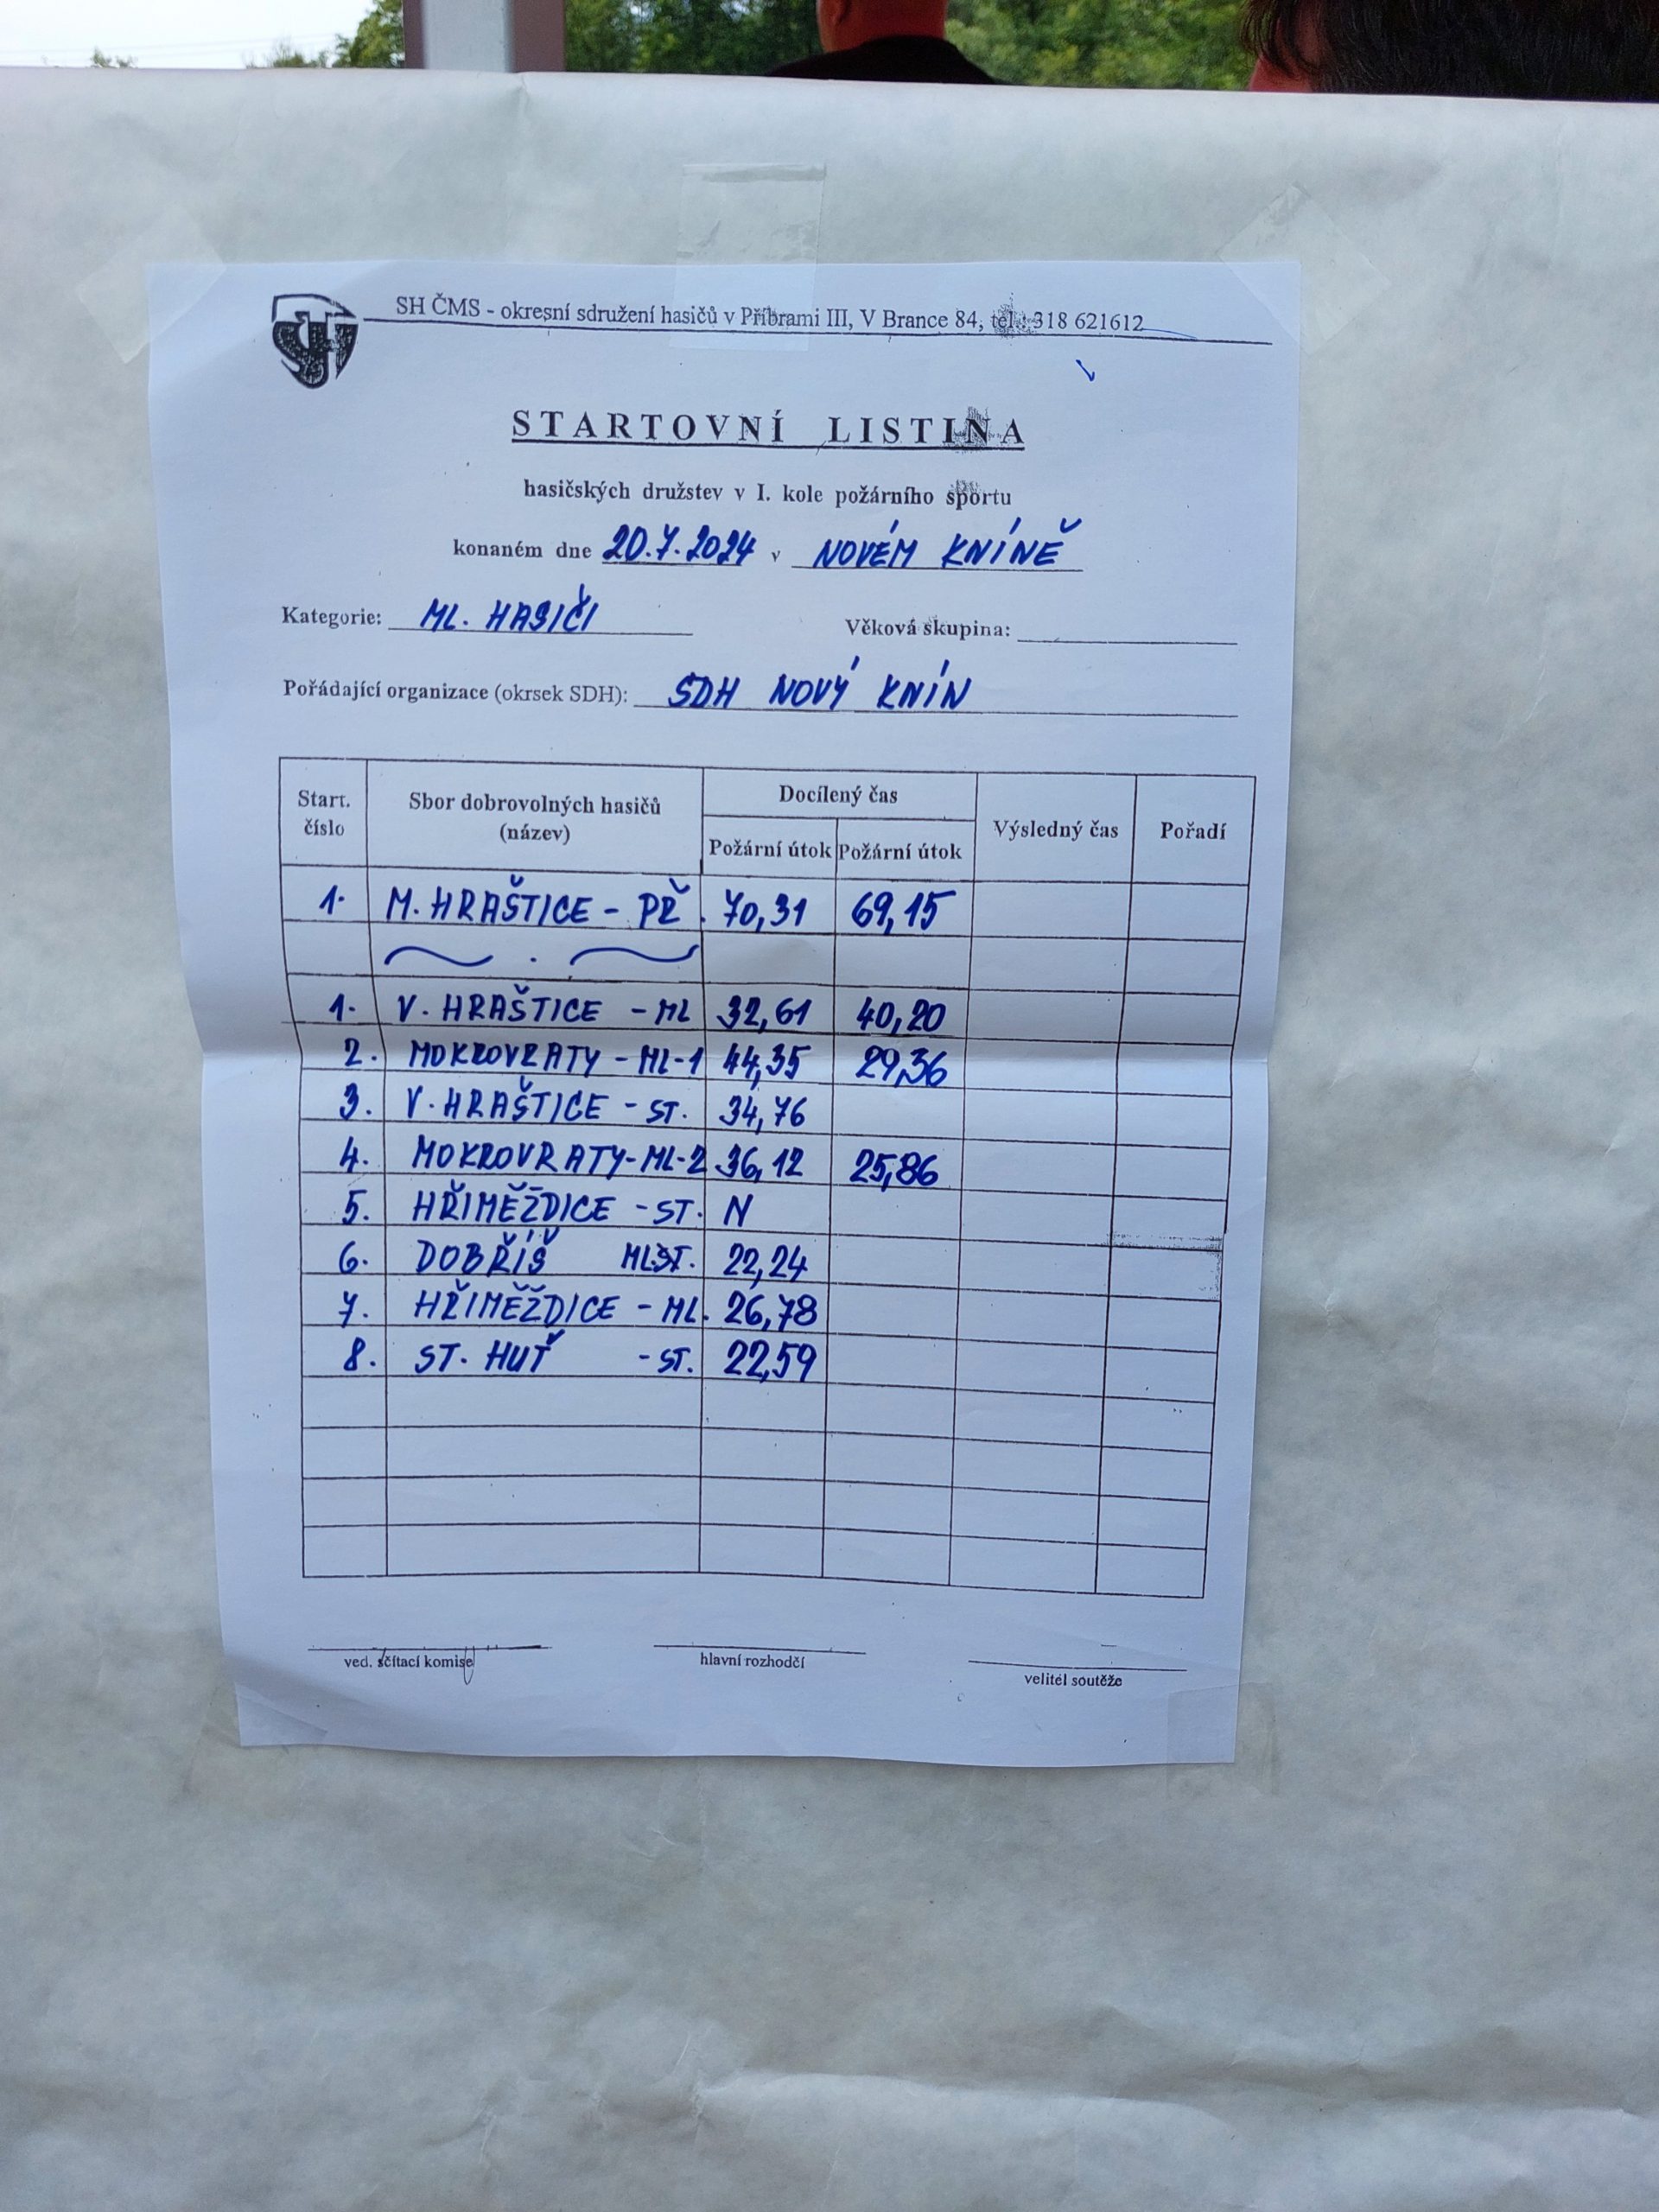 SH ČMS - okresní sdružení hasičů v Příbrami III, V Brance 84, tel.: 318 621612
STARTOVNÍ LISTINA
hasičských družstev v I. kole požárního sportu
konaném dne 20.7.2024 v NOVÉM KNÍNĚ
Kategorie: ML. HASIČI Věková skupina:
Pořádající organizace (okrsek SDH): SDH NOVÝ KNÍN
Start. číslo Sbor dobrovolných hasičů (název) Docílený čas Výsledný čas Pořadí
Požární útok Požární útok
1. M. HRAŠTICE - PŘ. 70,31 69,15
1. V. HRAŠTICE - ML 32,61 40,20
2. MOKROVRATY - ML-1 44,35 29,36
3. V. HRAŠTICE - ST. 34,76
4. MOKROVRATY-ML-2 36,12 25,86
5. HŘIMĚŽDICE - ST. N
6. DOBŘÍŠ ST. 22,24
7. HŘIMĚŽDICE - ML. 26,78
8. ST. HUŤ - ST. 22,59
ved. sčítací komise hlavní rozhodčí velitel soutěže